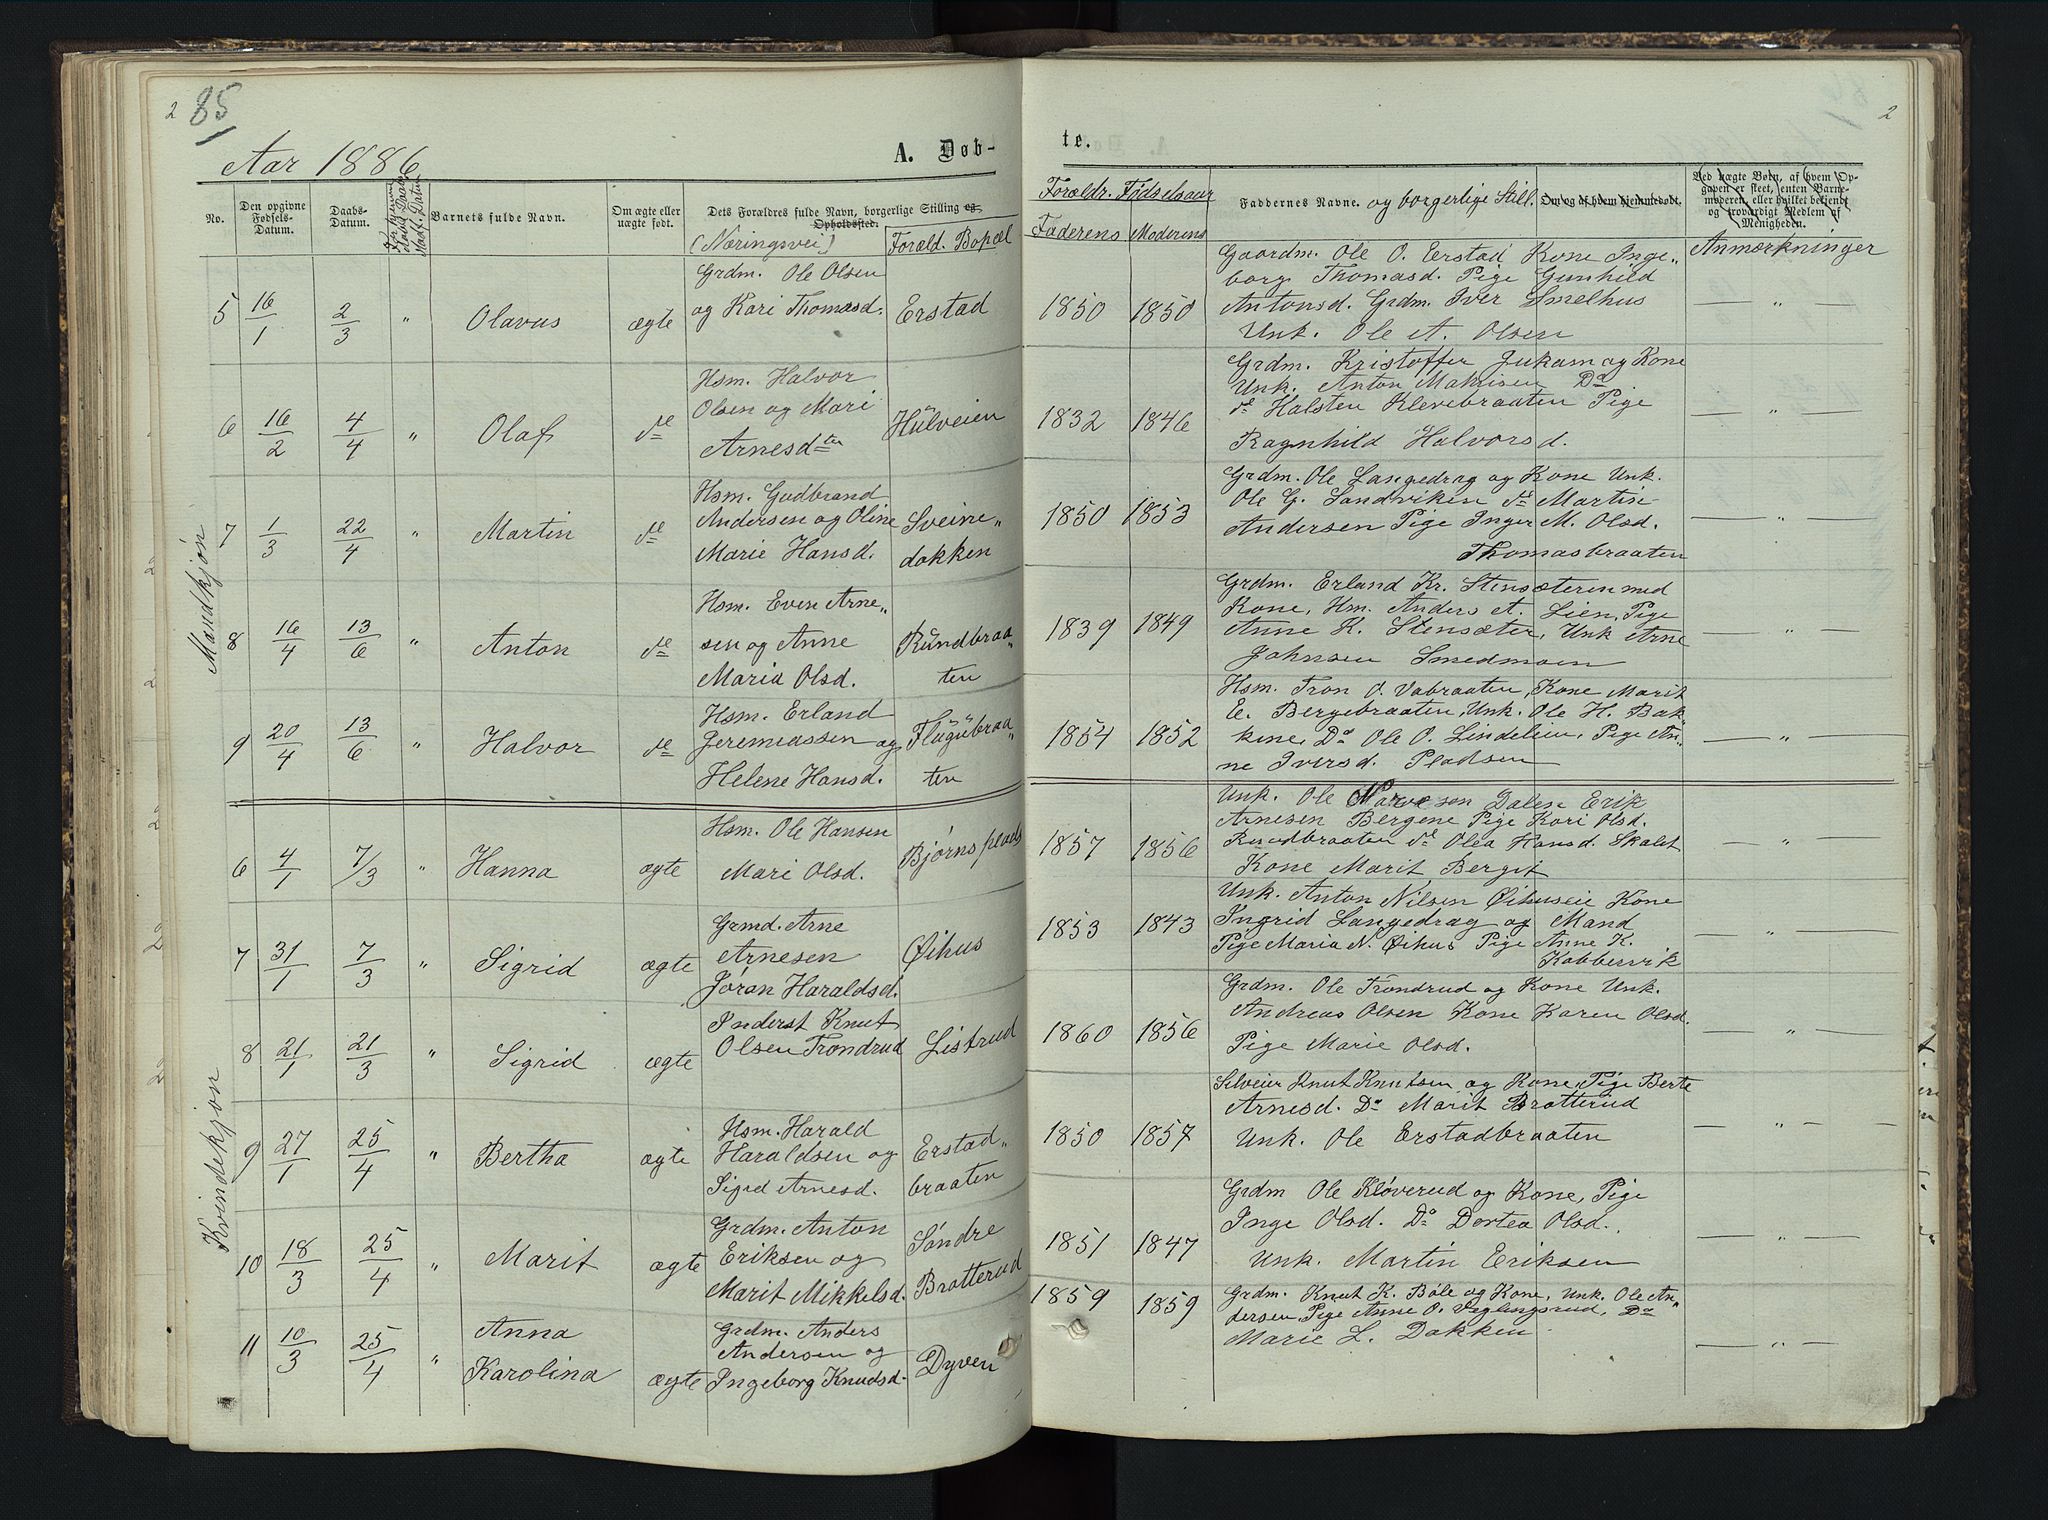 2 85
2
Aar 1886
A. Døb-
te.
No.
Den opgivne Fødsels-Datum.
Daabs-Datum.
Barnets fulde Navn.
Om ægte eller uægte født.
Dets Forældres fulde Navn, borgerlige Stilling og Opholdssted.
(Næringsvei)
Foræld. Bopæl
Forældr. Fødselsaar
Faderens Moderens
Faddernes Navne. og borgerlige Still.
Om og af hvem hjemmedøbt.
Ved uægte Børn, af hvem Op-
gaven er skeet, enten Barne-
moderen, eller hvilket betjent
og troværdigt Medlem af
Menigheden.
Anmærkninger
Mandkjøn
5 16/1 2/3 " Olavus ægte
Grdm. Ole Olsen
og Kari Thomasd.
Erstad
1850 1850
Gaardm. Ole O. Erstad Kone Inge„
borg Thomasd. Pige Gunhild
Antonsd. Grdm. Iver Smelhus
Unk. Ole A. Olsen
— " —
6 16/2 4/4 " Olaf de
Hsm. Halvor
Olsen og Mari
Arnesdtr
Hülveien
1832 1846
Grdm. Kristoffer Jukam og Kone
Unk. Anton Mathisen Do
de Halsten Klevebraaten Pige
Ragnhild Halvorsd.
— " —
7 1/3 22/4 " Martin de
Hsm. Gudbrand
Andersen og Oline
Marie Hansd.
Sveine„
dokken
1850 1853
Grdm. Ole Langedrag og Kone Unk.
Ole G. Sandviken de Martin
Andersen Pige Inger M. Olsd.
Thomasbraaten
— " —
8 16/4 13/6 " Anton de
Hsm. Even Arne„
sen og Anne
Maria Olsd.
Rundbraa„
ten
1839 1849
Grdm. Erland Kr. Stensæteren med
Kone, Hm. Anders A. Lien, Pige
Anne K. Stensæter, Unk Arne
Johnsen Smedmoen
— " —
9 20/4 13/6 " Halvor de
Hsm. Erland
Jeremiassen og
Helene Hansd.
Flügübraa„
ten
1854 1852
Hsm. Tron O. Vabraaten, Kone Marit
E. Bergebraaten, Unk. Ole H. Bak„
kene, Do Ole O. Lindelien, Pige An„
ne Iversd. Pladsen
— " —
Kvindekjøn
6 4/1 7/3 " Hanna ægte
Hsm. Ole Hansen
Mari Olsd.
Bjørnsplads
1857 1856
Unk. Ole Narvesen Dalen Erik
Arnesen Bergene Pige Kari Olsd.
Rundbraaten de Olea Hansd. Skalst
Kone Marit Bergit
— " —
7 31/1 7/3 " Sigrid ægte
Grmd. Arne
Arnesen
Jøran Haraldsd.
Øihus
1853 1843
Unk. Anton Nilsen Øihuseie Kone
Ingrid Langedrag og Mand
Pige Maria N. Øihus Pige Anne K.
Kabbervik
— " —
8 21/1 21/3 " Sigrid ægte
Inderst Knut
Olsen Trondrud
Listrud
1860 1856
Grdm. Ole Trondrud og Kone Unk.
Andreas Olsen Kone Karen Olsd.
Pige Marie Olsd.
— " —
9 27/1 25/4 " Bertha ægte
Hsm. Harald
Haraldsen og
Sigrd Arnesd.
Erstad„
braaten
1850 1857
Selveier Knut Knutsen og Kone, Pige Berte
Arnesd. Do Marit Brotterud
Unk. Ole Erstadbraaten
— " —
10 18/3 25/4 " Marit ægte
Grdm. Anton
Eriksen og
Marit Mikkelsd.
Søndre
Brotterud
1851 1847
Grdm Ole Kløverud og Kone, Pige
Inge Olsd. Do Dortea Olsd.
Unk. Martin Eriksen
— " —
11 10/3 25/4 " Anna
Karolina ægte
Grdm. Anders
Andersen og
Ingeborg Knudsd.
Dyven
1859 1859
Grdm. Knut K. Bøle og Kone, Unk. Ole An„
dersen, Pige Anne O. Veglingsrud, Do
Marie L. Dokken
— " —